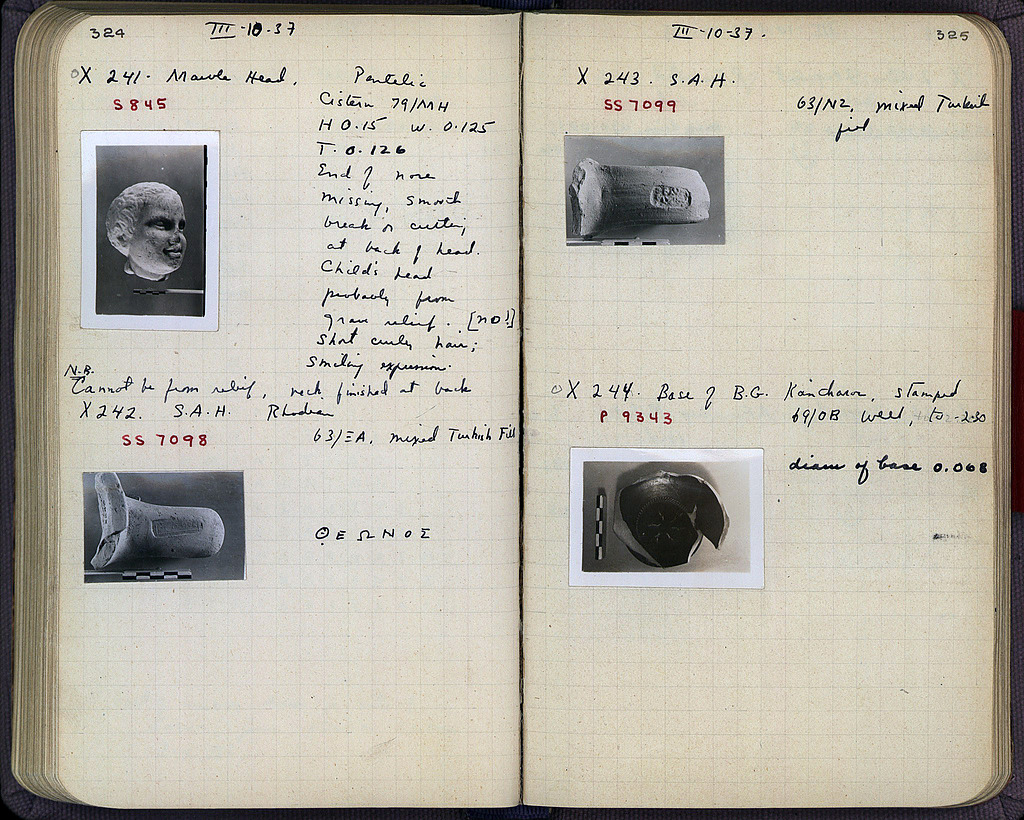 324
III-10-37
X 241. Marble Head. Pentelic
S 845
Cistern 79/ΜΗ
H 0.15 W. 0.125
T. 0.126
End of nose
missing, smooth
break or cutting
at back of head.
Child's head
probably from
grave relief. [no!]
Short curly hair;
smiling expression.
N.B.
Cannot be from relief, neck finished at back
X 242. S.A.H. Rhodian
SS 7098
63/ΞΑ, mixed Turkish Fill
ΘΕΩΝΟΣ
III-10-37.
325
X 243. S.A.H.
SS 7099
63/ΝΖ, mixed Turkish
fill
X 244. Base of B.G. Kantharos, stamped
P 9343
69/ΟΒ well, to -2.30
diam of base 0.068